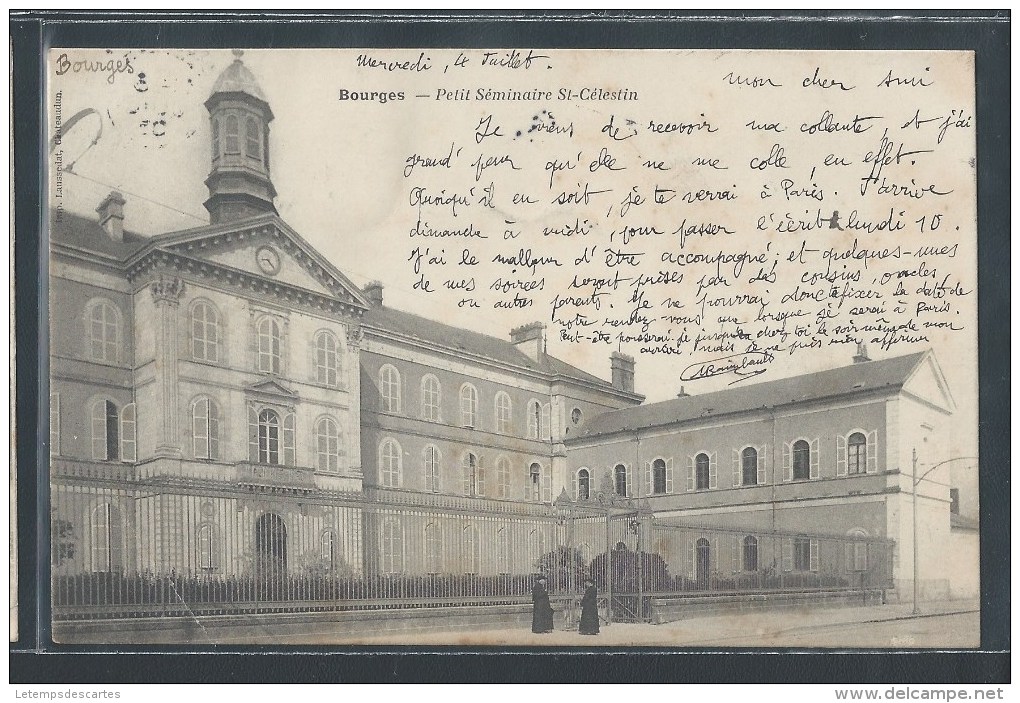 Bourges
Mercredi, 4 Juillet.
Mon cher Ami
Bourges — Petit Séminaire St-Célestin
Je viens de recevoir ma collante, et j'ai
grand' peur qu'elle ne me colle, en effet.
Quoiqu'il en soit, je te verrai à Paris. J'arrive
dimanche à midi, pour passer l'écrit lundi 10.
J'ai le malheur d'être accompagné; et quelques-unes
de mes soirées seront prises par des cousins, oncles,
ou autres parents. Je ne pourrai donc fixer la date de
notre rendez-vous que lorsque je serai à Paris.
Peut-être pousserai-je jusque chez toi le soir même de mon
arrivée, mais je ne puis rien affirmer
Imp. Laussedat, Chateaudun.
Letempsdescartes
www.delcampe.net